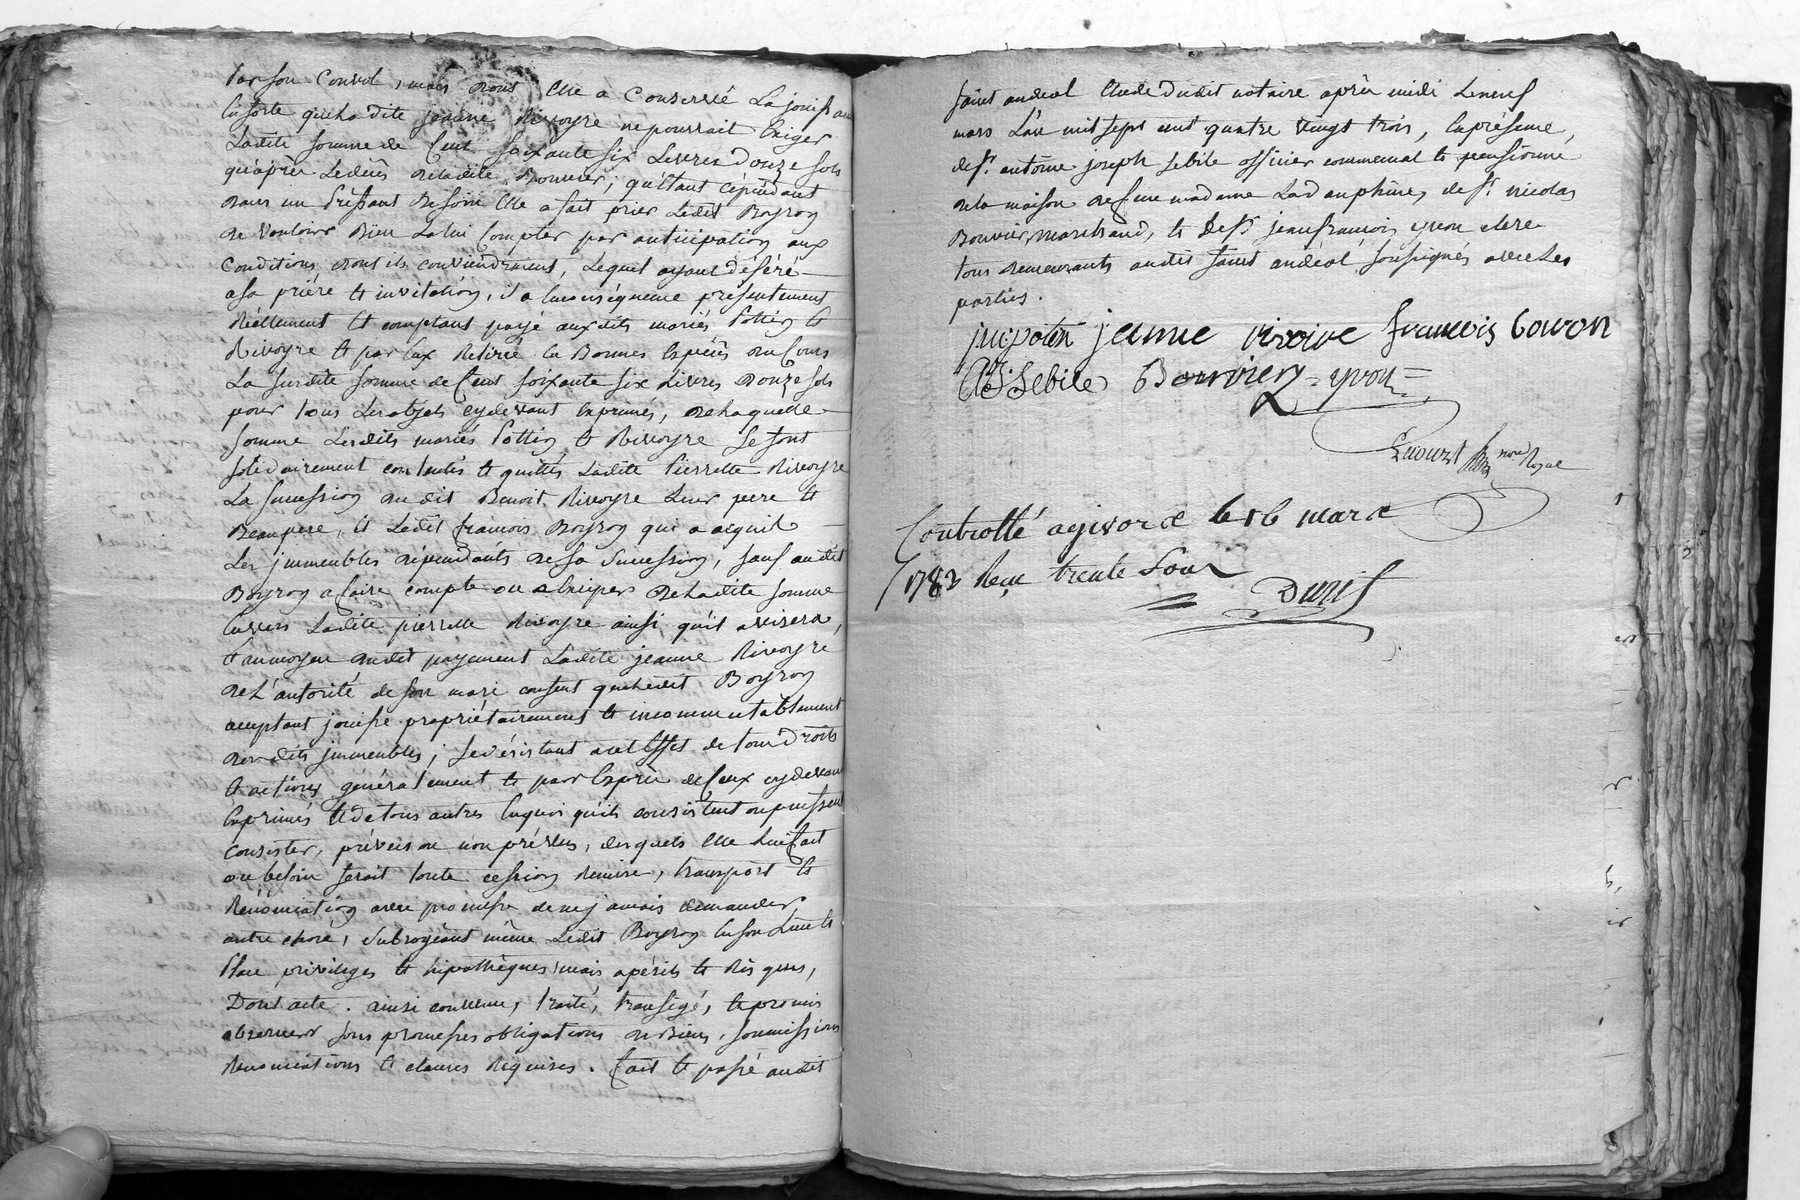 par son convol, mais dont elle a conservé la jouissance
en sorte que ladite jeanne Rivoyre ne pourrait Exiger
Ladite somme de Cent soixante six Livres douze sols
qu'après Le décès de ladite Bonnier; qu'étant cépendant
dans un préssant Besoin Elle a fait prier Ledit Boyron
de vouloir Bien La lui Compter par anticipation aux
Conditions dont ils conviendroient, Lequel ayant déféré
a sa priére et invitation, il a En conséquence présentement
Réellement et comptant payé auxdits mariés Pottin et
Rivoyre et par Eux Retiré En Bonnes Espèces au Cours
La susdite somme de Cent soixante six Livres douze sols
pour tous Les objets cy devant Exprimés, de laquelle
somme Lesdits mariés Pottin et Rivoyre se sont
solidairement contentés et quittés Ladite Pierrette Rivoyre
La succession du dit Benoit Rivoyre Leur pere et
Beaupere, et Ledit francois Boyron qui a acquis
Les jmmeubles dépendants de sa succession, sauf audit
Boyron a faire compte ou a Exiper de ladite somme
Envers Ladite pierrette Rivoyre ainsi qu'il avisera,
et au moyen dudit payement Ladite jeanne Rivoyre
de L'autorité de son mari consent que ledit Boyron
acceptant jouisse propriétairement et incommutablement
desdits jmmeubles; se désistant a cet Effet de tous Droits
et actions généralement et par Exprès de Ceux cy devant
Exprimés et de tous autres En quoi qu'ils consistent ou puissent
consister, prévus ou non prévus, desquels elle lui fait
ou besoin serait toute cession Remise, transport et
Rénonciation avec promesse de ne jamais demander
autre chose, subrogeant même Ledit Boyron En son Lieu et
Place privileges et hipothèques mais a périls et Risques,
Dont acte. ainsi convenu, traité, transigé, et promis
observer sous promesses obligations de Biens, soumissions
Renonciations et clauses Requises. fait et passé audit
saint andéol Etude dudit notaire après midi Le neuf
mars L'an mil sept cent quatre vingt trois, En présence
de sr. antoine joseph sebile officier commensal et pensionné
de la maison de feue madame La dauphine, de sr. nicolas
Bouvier, marchand, et de sr jean francois yvon clerc
tous demeurants audit saint andéol soussignés avec Les
parties.
jeanne rivoire francois boiron
A J Sebile Bouvier yvon
Controllé a givors le 16 mars
1783 Reçu trente sous